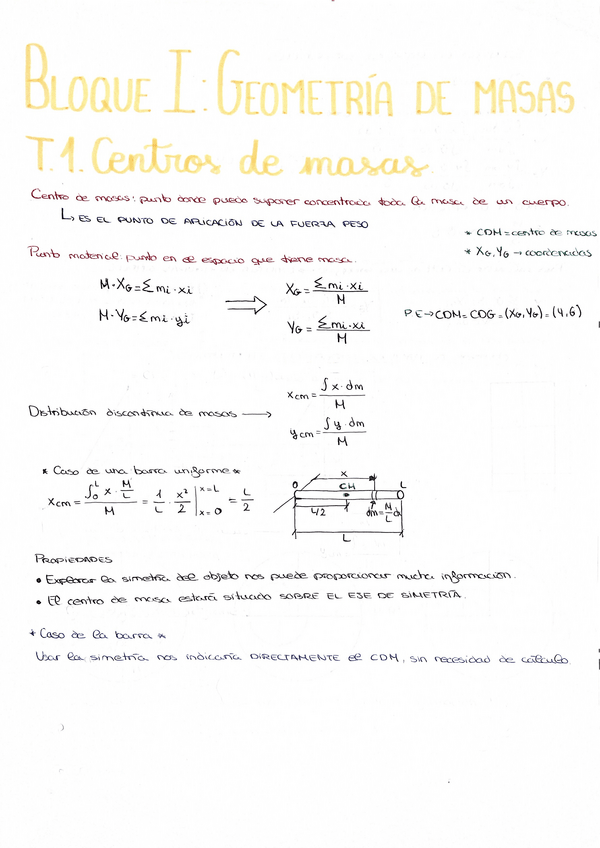 BLOQUE I: GEOMETRÍA DE MASAS
T.1. Centros de masas.
Centro de masas: punto donde puedo suponer concentrada toda la masa de un cuerpo.
↳ ES EL PUNTO DE APLICACIÓN DE LA FUERZA PESO
* CDM = centro de masas
* XG, YG → coordenadas
Punto material: punto en el espacio que tiene masa.
M·XG = Σ mi·xi
M·YG = Σ mi·yi
⇒
XG = Σ mi·xi / M
YG = Σ mi·xi / M
PE → CDM = COG = (XG, YG) = (4,6)
Distribución discontinua de masas →
xcm = ∫ x·dm / M
ycm = ∫ y·dm / M
* Caso de una barra uniforme *
xcm = ∫₀ᴸ x · M/L / M = 1/L · x²/2 | x=L x=0 = L/2
O x L
CM
L/2 dm = M/L d
L
PROPIEDADES
• Explorar la simetría del objeto nos puede proporcionar mucha información.
• El centro de masa estará situado SOBRE EL EJE DE SIMETRÍA.
* Caso de la barra *
Usar la simetría nos indicaría DIRECTAMENTE el CDM, sin necesidad de cálculo.